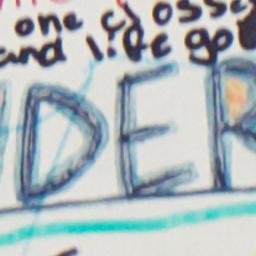 one crosse
and life go
DER